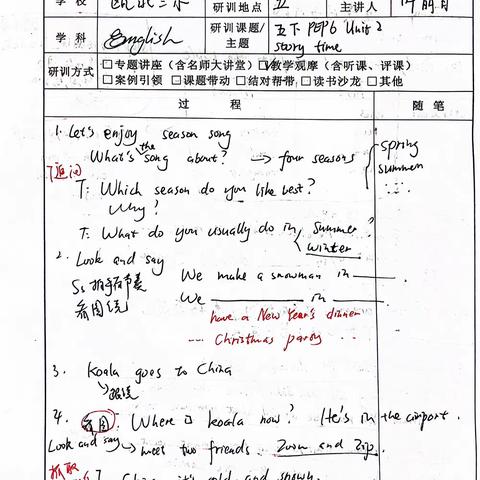 学 校
研训地点 五 主讲人
学 科 English 研训课题/主题 五下 PEP6 Unit 2 story time
研训方式 □专题讲座（含名师大讲堂）☑教学观摩（含听课、评课）
□案例引领 □课题带动 □结对帮带 □读书沙龙 □其他
过 程 随 笔
1. Let's enjoy season song
What's the song about? → four seasons spring
summer
...
T追问
T: Which season do you like best?
Why?
T: What do you usually do in summer?
winter
2. Look and say
We make a snowman in ____.
看图说
We ____ in ____
have a New Year's dinner
... Christmas party ...
3. Koala goes to China
4. 看图: Where is koala now? He's in the airport.
Look and say → meet two friends Zoom and Zip.
抓取